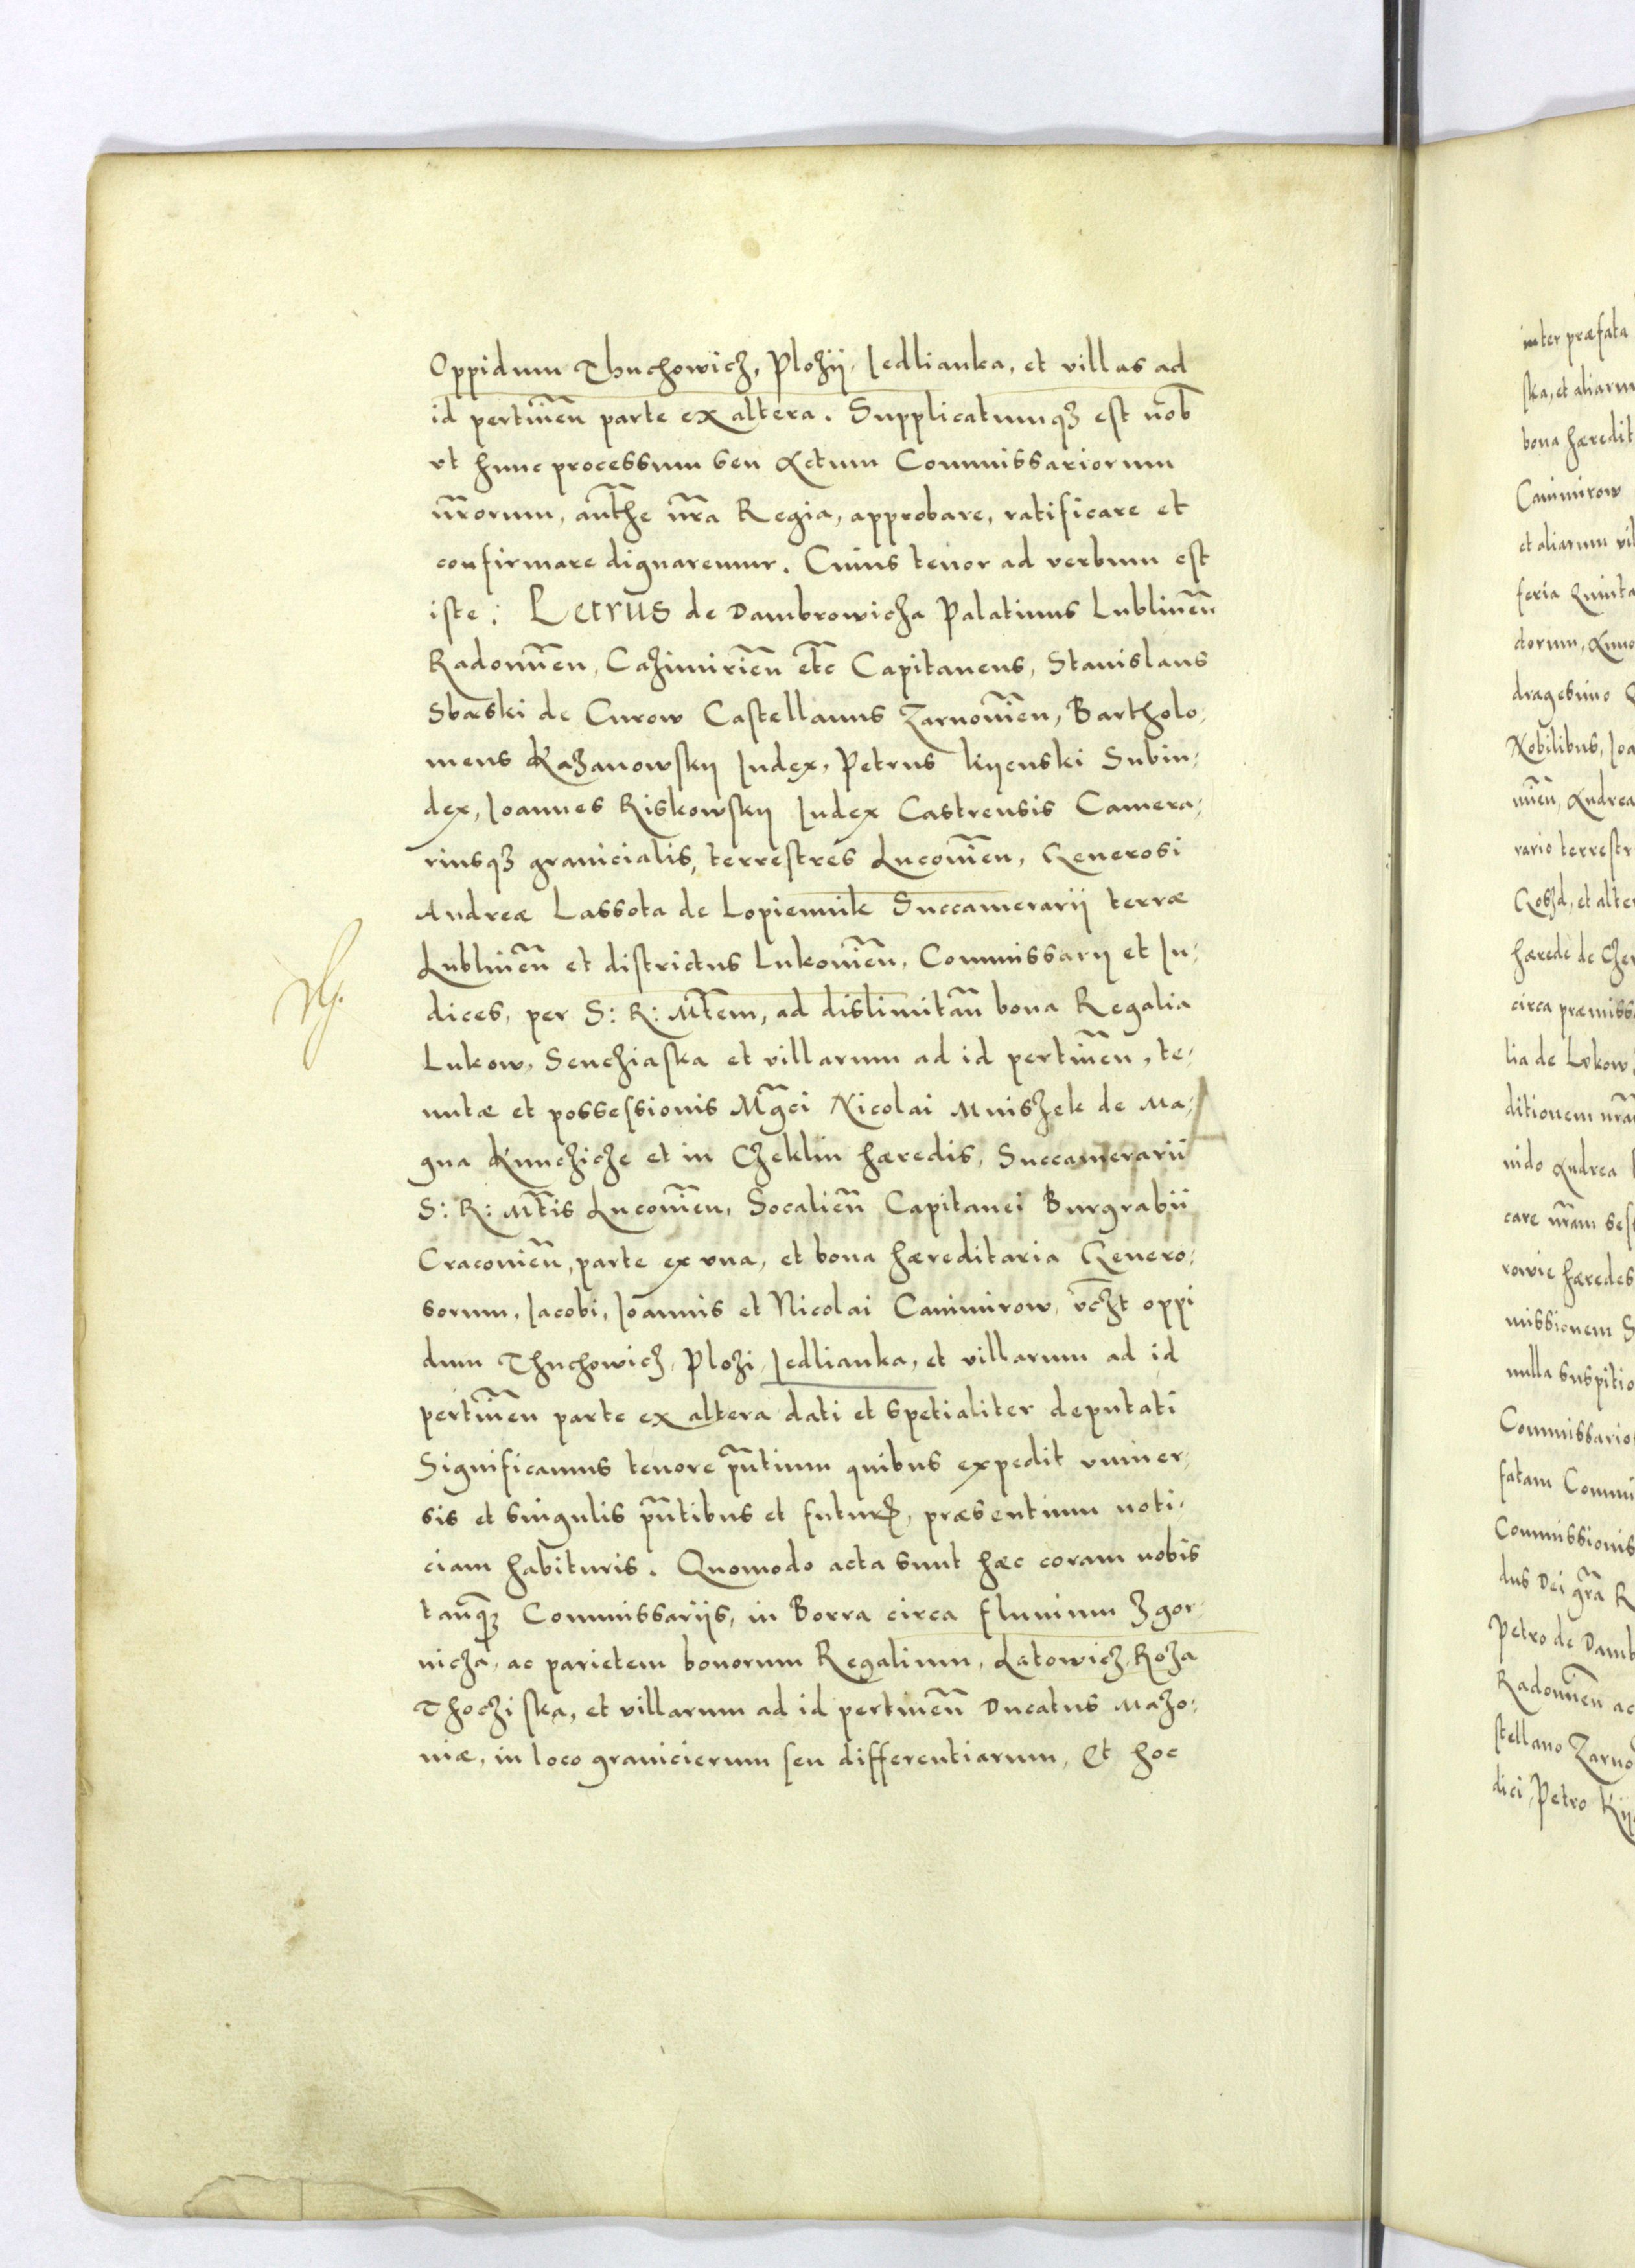 Oppidum Thuchowicz, Plozÿ, Jedlianka, et villas ad
id pertineñ parte ex altera. Supplicatumqꝫ est nob̃
vt hunc processum seu Actum Commissariorum
nr̃orum, auth̃e nr̃a Regia, approbare, ratificare et
confirmare dignaremur. Cuius tenor ad verbum est
iste: Petrus de Dambrowicza Palatinus Lublineñ
Radomieñ, Cazimirieñ etc̃ Capitaneus, Stanislaus
Sbaski de Curow Castellanus Zarnovieñ, Bartholo⸗
meus Kazanowskÿ Judex, Petrus Kijenski Subiu⸗
dex, Joannes Riskowskÿ Judex Castrensis Camera⸗
riusqꝫ granicialis, terrestres Lucovieñ, Generosi
Andreæ Lassota de Lopiennik Succamerarij terræ
Lublineñ et districtus Lukovieñ, Commissarij et Ju⸗
dices, per S: R: Mt̃em, ad dislimitañ bona Regalia
Lukow, Senchiaska et villarum ad id pertineñ, te⸗
nutæ et possessionis Mg̃ci Nicolai Mniszek de Ma⸗
gna Kunchicze et in Czeklin hæredis, Succamerarii
S: R: Mt̃is Lucovieñ, Socalieñ Capitanei Burgrabii
Cracovieñ, parte ex vna, et bona hæreditaria Genero⸗
sorum, Jacobi, Joannis et Nicolai Canimirow, vcz̃t oppi
dum Thuchowicz, Plozi, Jedlianka, et villarum ad id
pertineñ parte ex altera dati et spetialiter deputati
Significamus tenore pñtium quibus expedit vniuer⸗
sis et singulis pñtibus et futurꝭ, præsentium noti⸗
ciam habituris. Quomodo acta sunt hæc coram nobis
tanq̃ꝫ Commissariis, in Borra circa fluuium Zgor⸗
nicza, ac parietem bonorum Regalium, Latowicz, Roza
Thocziska, et villarum ad id pertineñ Ducatus Mazo⸗
uiæ, in loco granicierum seu differentiarum, Et hoc
inter præfata
ska, et aliarum
bona hæredit
Canimirow
et aliarum vil
feria Quinta
dragesimo
Nobilibus, Joa
rario terrestr
hærede de Cze
circa præmiss
lia de Lukow
ditionem nr̃a
nido Andrea
rowie hæredes
missionem S
nulla suspitio
Commissario
fatam Commi
Commissionis
dus Dei gr̃a R
Petro de Damb
Radomieñ ac
stellano Zarno
dici, Petro Kij